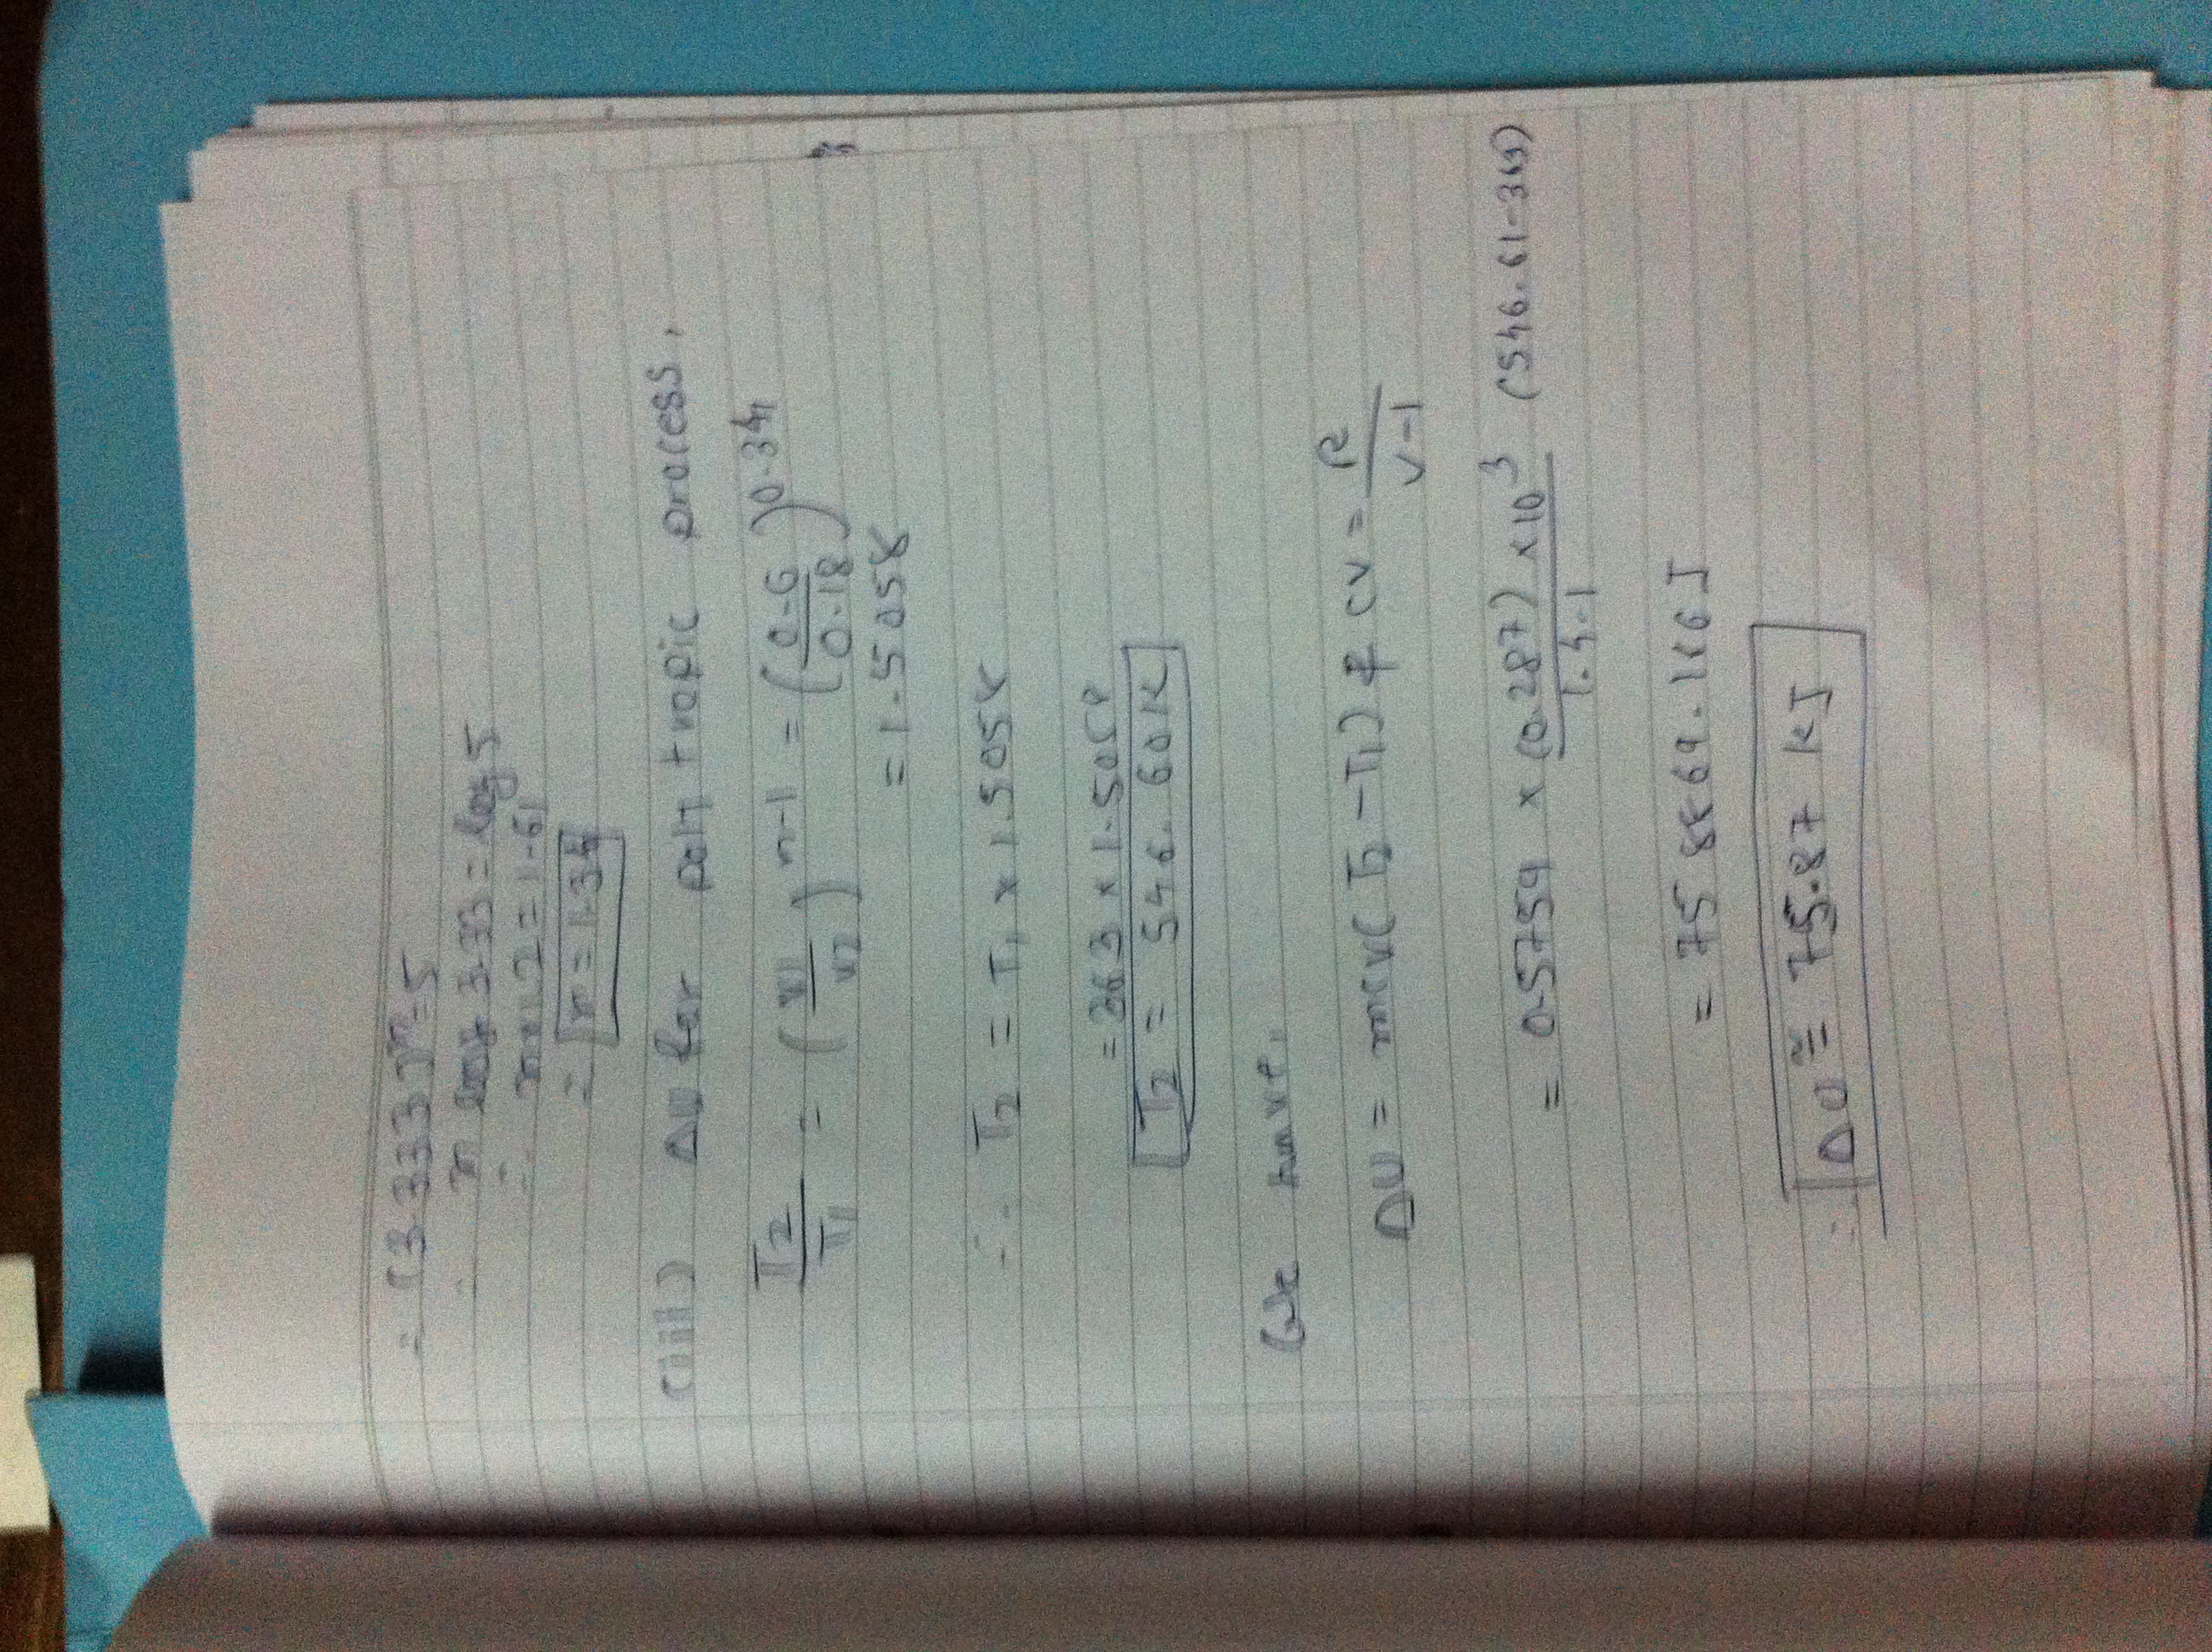 = (3.333)ⁿ=5
n log 3.33 = log 5
∴ n×1.2 = 1.61
= n = 1.34
(iii) ΔU for poly tropic process,
T2/T1 = (V1/V2)^n-1 = (0.6/0.18)^0.34
= 1.5058
∴ T2 = T1 × 1.5058
= 363 × 1.5058
T2 = 546.60K
We have,
ΔU = mcv(T2-T1) & cv = R/γ-1
= 0.5759 × (0.287)×10^3/1.4-1 (546.61-363)
= 758869.186J
∴ ΔU ≅ 75.87 KJ